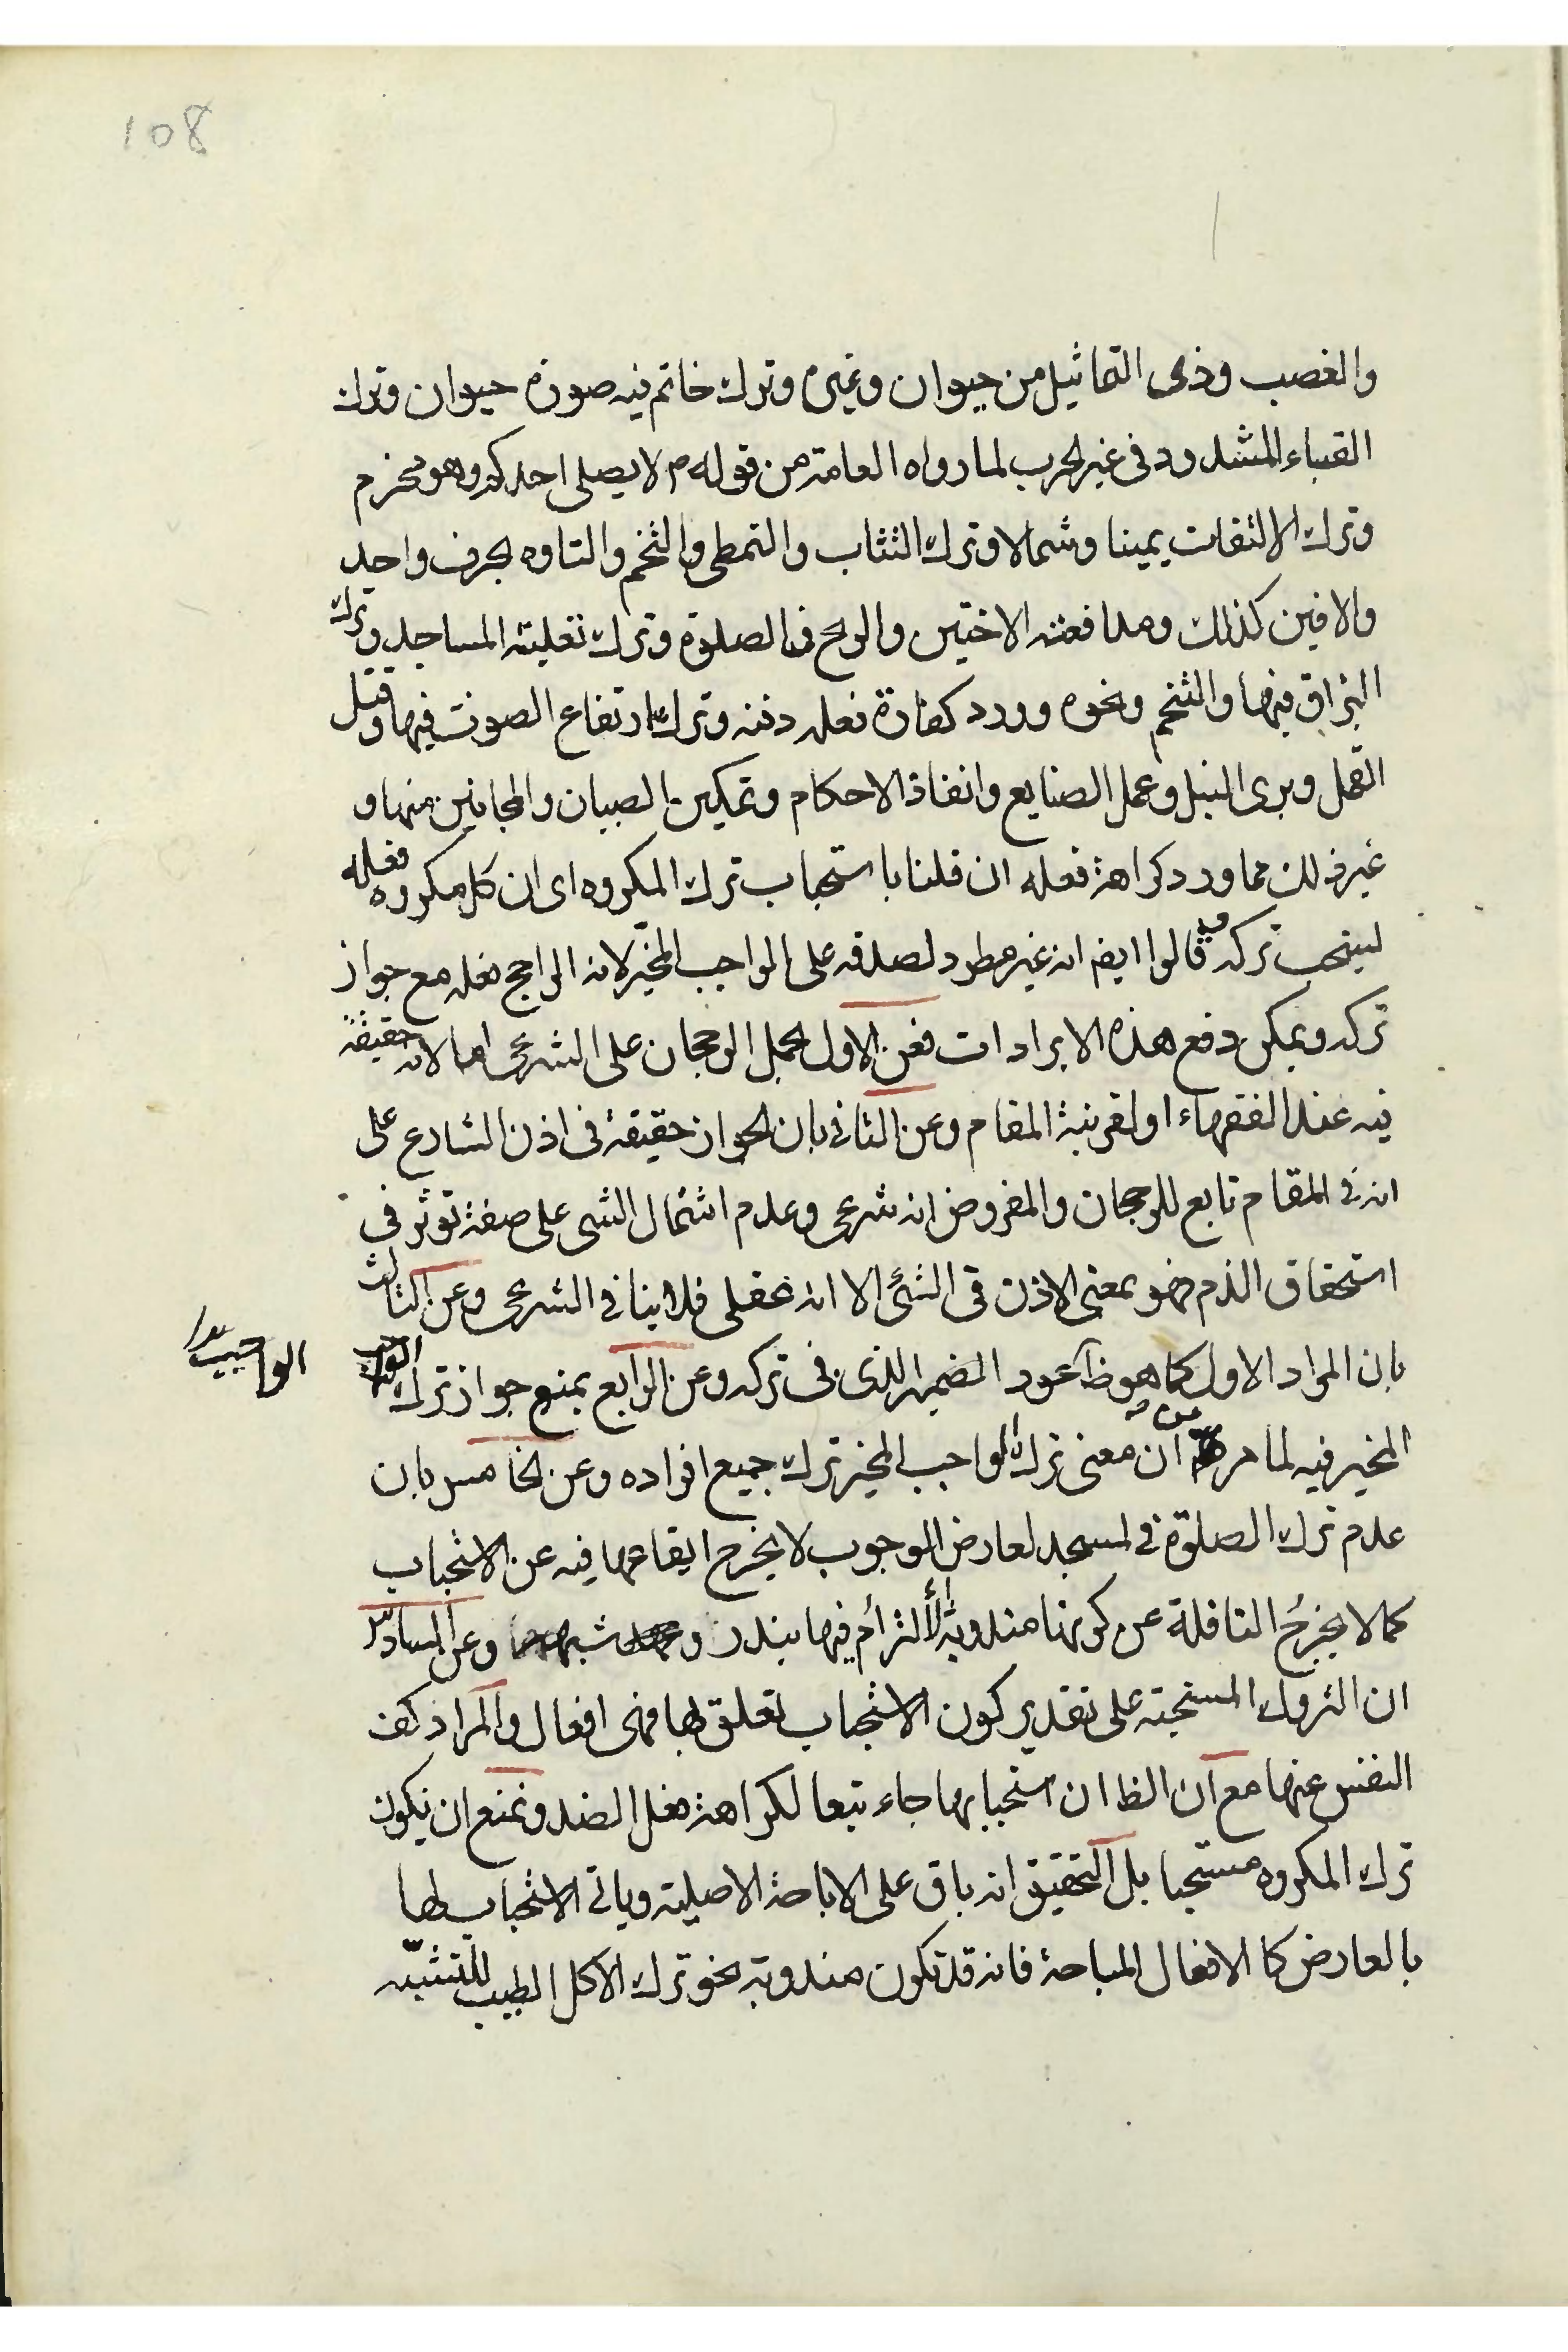 108
والغصب وذى التماثيل من حيوان وغيره وترك خاتم فيه صورة حيوان وترك
القباء المشدود فى غير الحرب لما رواه العامة من قوله م لا يصلى احدكم وهو محزم
وترك الالتفات يمينا وشمالا وترك التثاب والتمطى والتنخم والتاوه بحرف واحد
والانين كذلك ومدافعته الاخبثين والريح فى الصلوة وترك تعلية المساجد وترك
البزاق فيها والتنخم ونحوه وورد كفارة فعله دفنه وترك ارتفاع الصوت فيها وقتل
القمل وبرى النبل وعمل الصنايع وانفاذ الاحكام وتمكين الصبيان والمجانين منها و
غير ذلك مما ورد كراهة فعله ان قلنا باستحباب ترك المكروه اى ان كل مكروه فعله
ليستحب تركه قالوا ايضا انه غير مطرد لصدقه على الواجب المخيّر لانه الراجح فعله مع جواز
تركه ويمكن دفع هذه الايرادات فعن الاول بحمل الرجحان على الشرعى اما لانه حقيقة
فيه عند الفقهاء او لقرينة المقام وعن الثانى بان الجواز حقيقة فى اذن الشارع على
انه فى المقام تابع للرجحان والمفروض انه شرعى وعدم اشتمال الشى على صفة توثر فى
استحقاق الذم فهو بمعنى الاذن فى الشئ الا انه عقلى فلا ينافى الشرعى وعن الثالث
بان المراد الاول كما هو ظ عود الضمير الذى فى تركه وعن الرابع بمنع جواز ترك الواجب
الواجب بدل
المخير فيه لما مر من ان معنى ترك الواجب المخير ترك جميع افراده وعن الخامس بان
عدم ترك الصلوة فى المسجد لعارض الوجوب لا يخرج ايقاعها فيه عن الاستحباب
كما لا يخرج النافلة عن كونها مندوبة الالتزام فيها بنذر و شبهه وعن السادس
ان التروك المستحبة على تقدير كون الاستحباب تعلق بها فهى افعال والمراد كف
النفس عنها مع ان الظ ان استحبابها جاء تبعا لكراهة فعل الضد ونمنع ان يكون
ترك المكروه مستحبا بل التحقيق انه باق على الاباحة الاصلية وياتى الاستحباب لها
بالعارض كا الافعال المباحة فانه قد تكون مندوبة نحو ترك الاكل الطيب للتشبّه